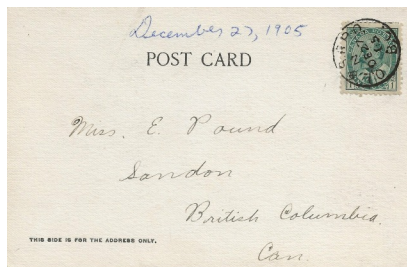 December 27, 1905
POST CARD
Miss. E. Pound
Sandon
British Columbia.
THIS SIDE IS FOR THE ADDRESS ONLY.
Can.